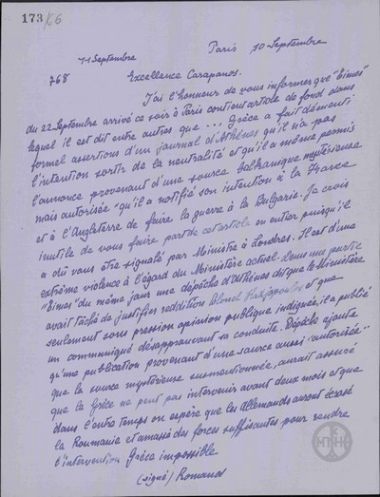 173/66
Paris 10 Septembre
11 Septembre
768 Excellence Carapanos.
J'ai l'honneur de vous informer que "Times"
du 22 Septembre arrivé ce soir à Paris contient article de fond dans
lequel il est dit entre autres que ... Grèce a fait démenti
formel assertions d'un journal d'Athènes qu'il n'a pas
l'intention sortir de la neutralité et qu'il a même permis
l'annonce provenant d'une source balkanique mystérieuse
mais autorisée "qu'il a notifié son intention à la France
et à l'Angleterre de faire la guerre à la Bulgarie. Je crois
inutile de vous faire part de cet article en entier puisqu'il
a dû vous être signalé par Ministre à Londres. Il est d'une
extrême violence à l'égard du Ministère actuel. Dans une partie
"Times" du même jour une dépêche d'Athènes dit que le Ministère
avait tâché de justifier reddition Colonel et que
seulement sous pression opinion publique indignée, il a publié
un communiqué désapprouvant sa conduite. Dépêche ajoute
qu'une publication provenant d'une source aussi "autorisée"
que la source mystérieuse susmentionnée, aurait assuré
que la Grèce ne peut pas intervenir avant deux mois et que
dans l'entre temps on espère que les Allemands auront écrasé
la Roumanie et amassé des forces suffisantes pour rendre
l'intervention Grèce impossible
(signé) Romanos